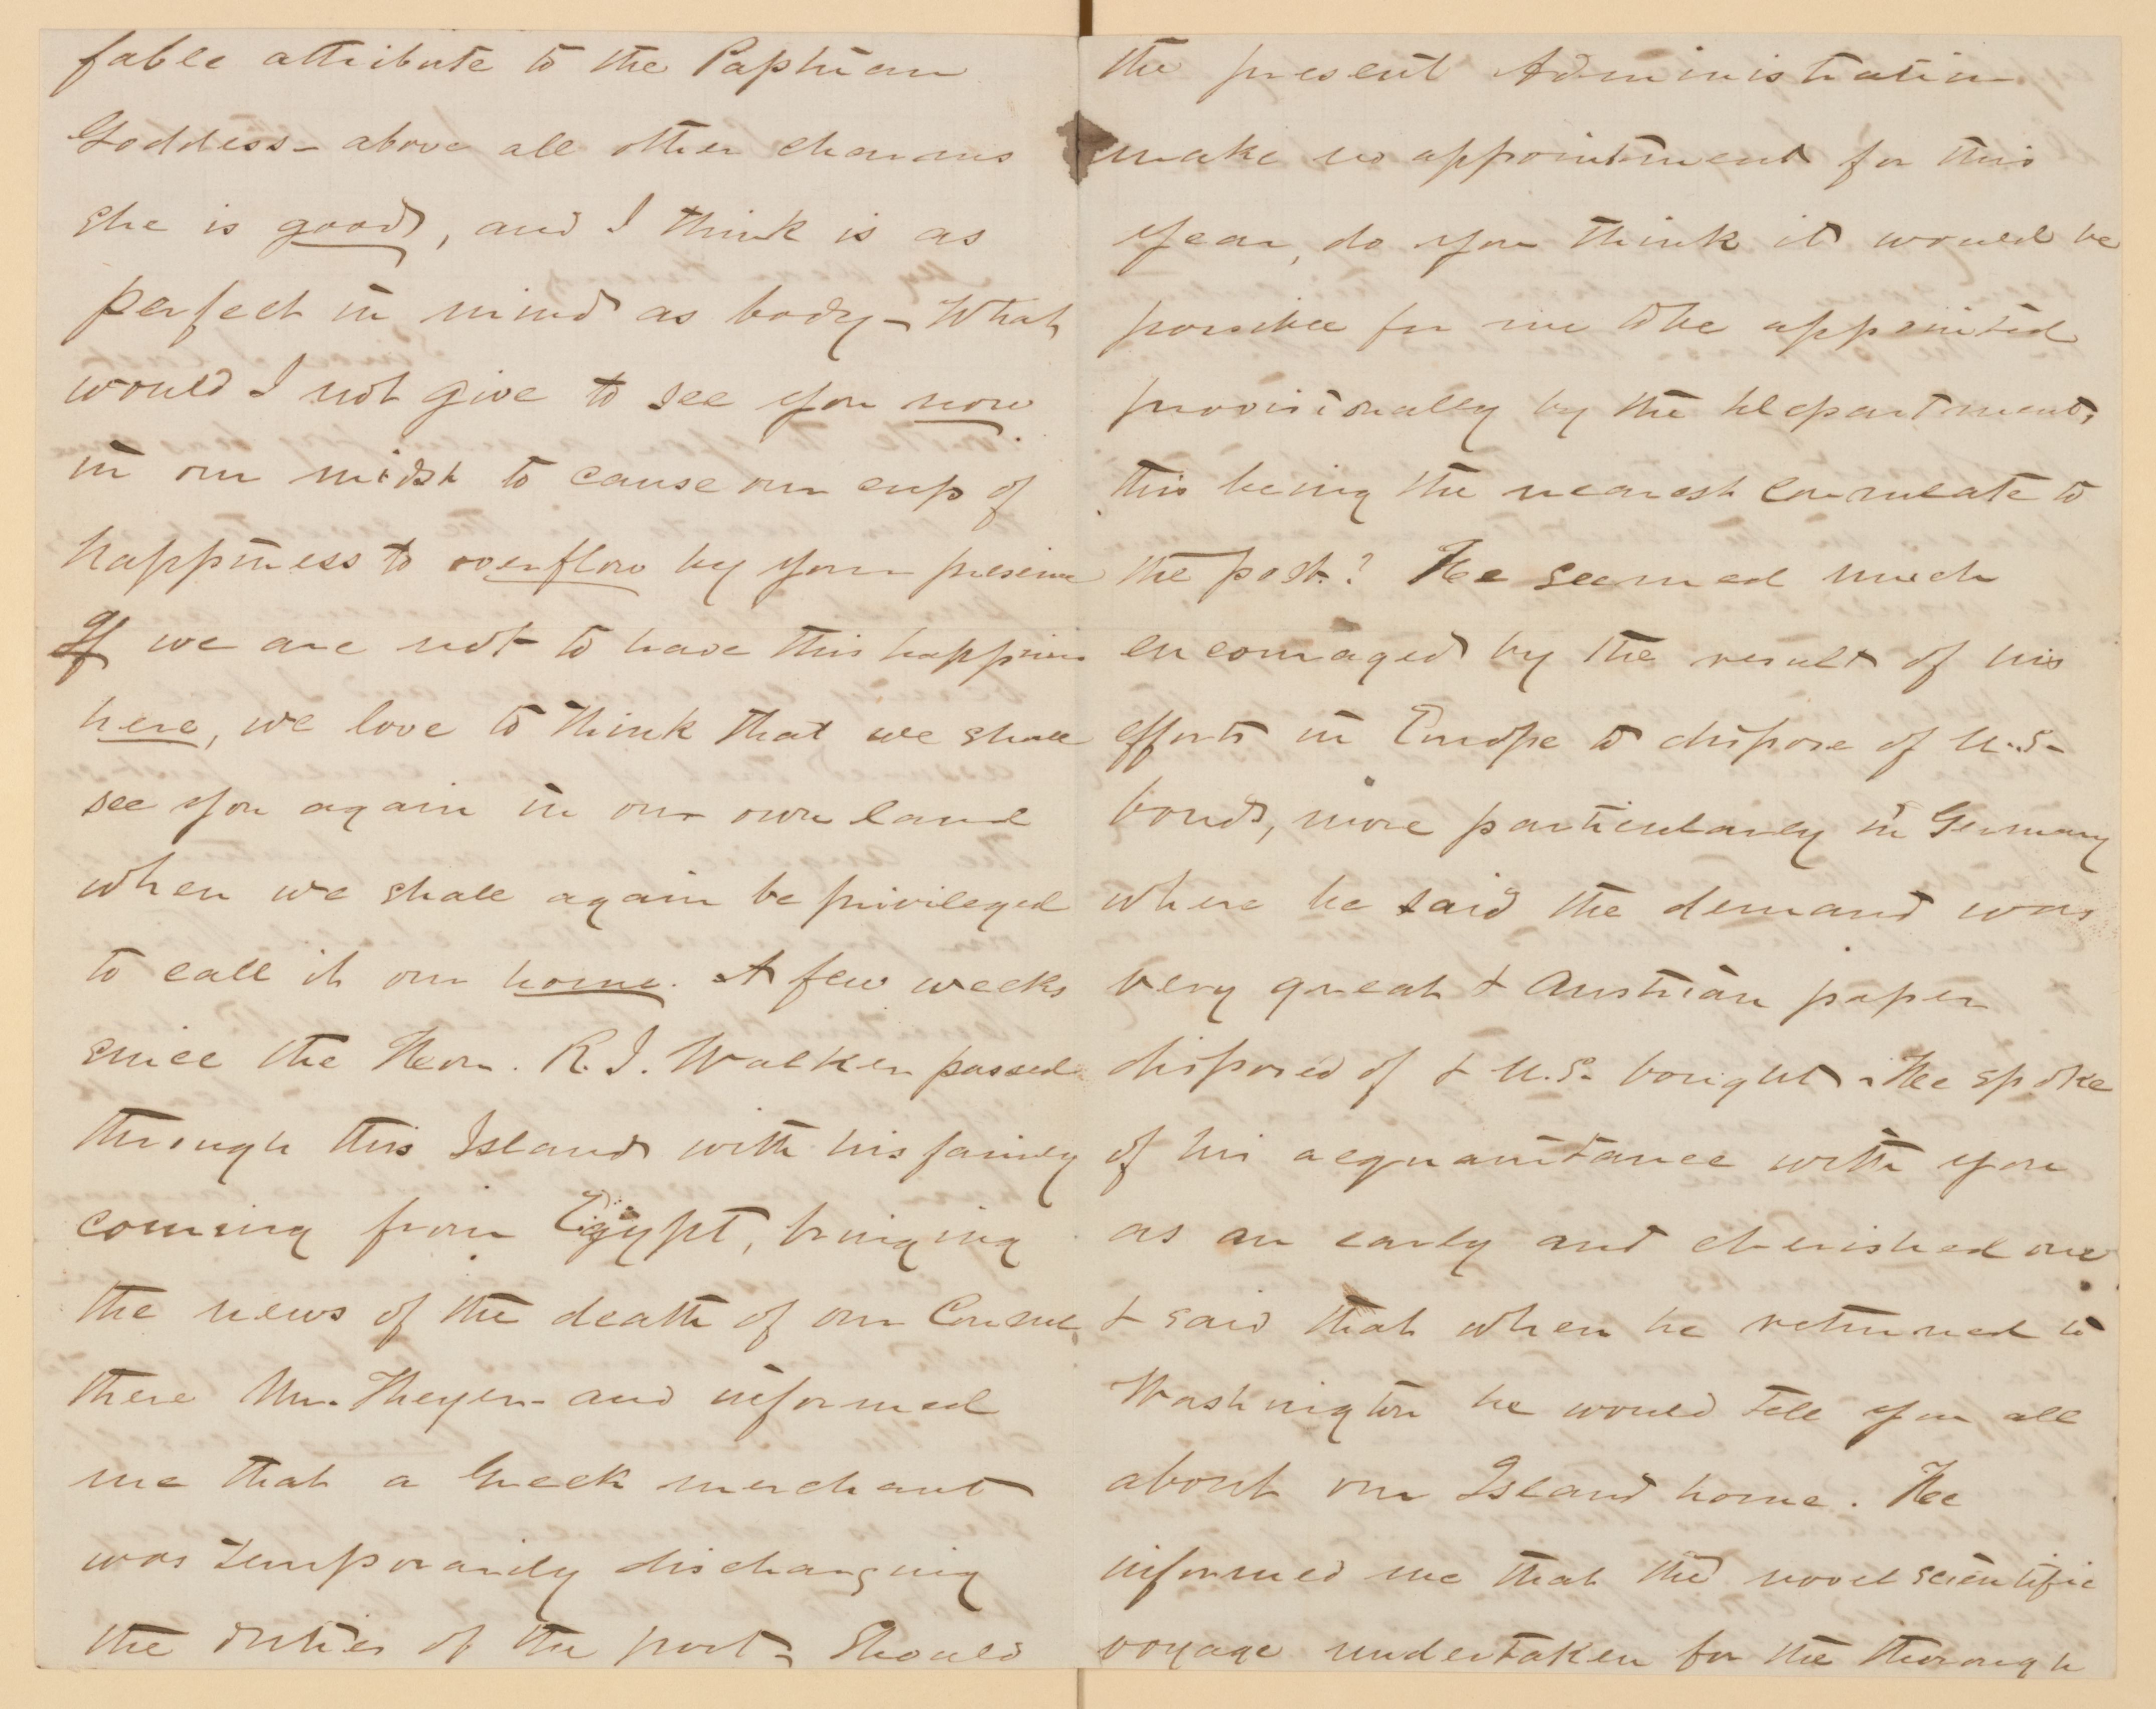 fable attribute to the Paphian
Goddess - above all other charms
she is good, and I think is as
perfect in mind as body - What
would I not give to see you now
in our midst to cause our cup of
happiness to overflow by your presence
If we are not to have this happiness
here, we love to think that we shall
see you again in our own land
when we shall again be privileged
to call it our home. A few weeks
since the Hon. R. J. Walker passed
through this Island with his family
coming from Egypt, bringing
the news of the death of our Consul
there Mr. Thayer - and informed
me that a Greek merchant
was temporarily discharging
the duties of the post - Should
the present Administration
make no appointment for this
year, do you think it would be
possible for me to be appointed
provisionally by the Department,
this being the nearest consulate to
the post? He seemed much
encouraged by the result of his
efforts in Europe to dispose of U.S.
bonds, more particularly in Germany
where he said the demand was
very great & Austrian paper
disposed of & U.S. bought - He spoke
of his acquaintance with you
as an early and cherished one
& said that when he returned to
Washington he would tell you all
about our Island home. He
informed me that the novel scientific
voyage undertaken for the thorough